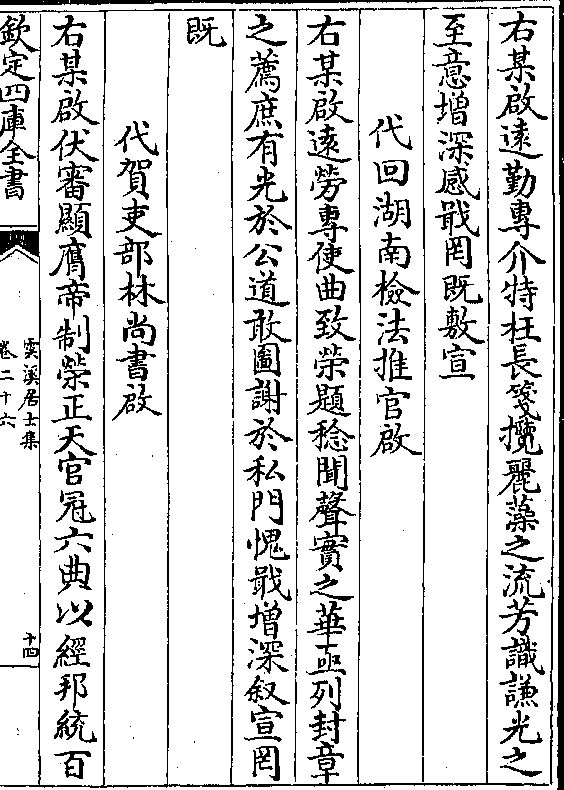 右某啟遠勤專介特枉長箋攬麗藻之流芳識謙光之
至意增深感戢罔既敷宣
代回湖南檢法推官啟
右某啟遠勞專使曲致榮題稔聞聲實之華亟列封章
之薦庶有光於公道敢圖謝於私門愧戢增深叙宣罔
既
代賀吏部林尚書啟
右某啟伏審顯膺帝制榮正天官冠六典以經邦統百
欽定四庫全書
雲溪居士集
卷二十六
十四